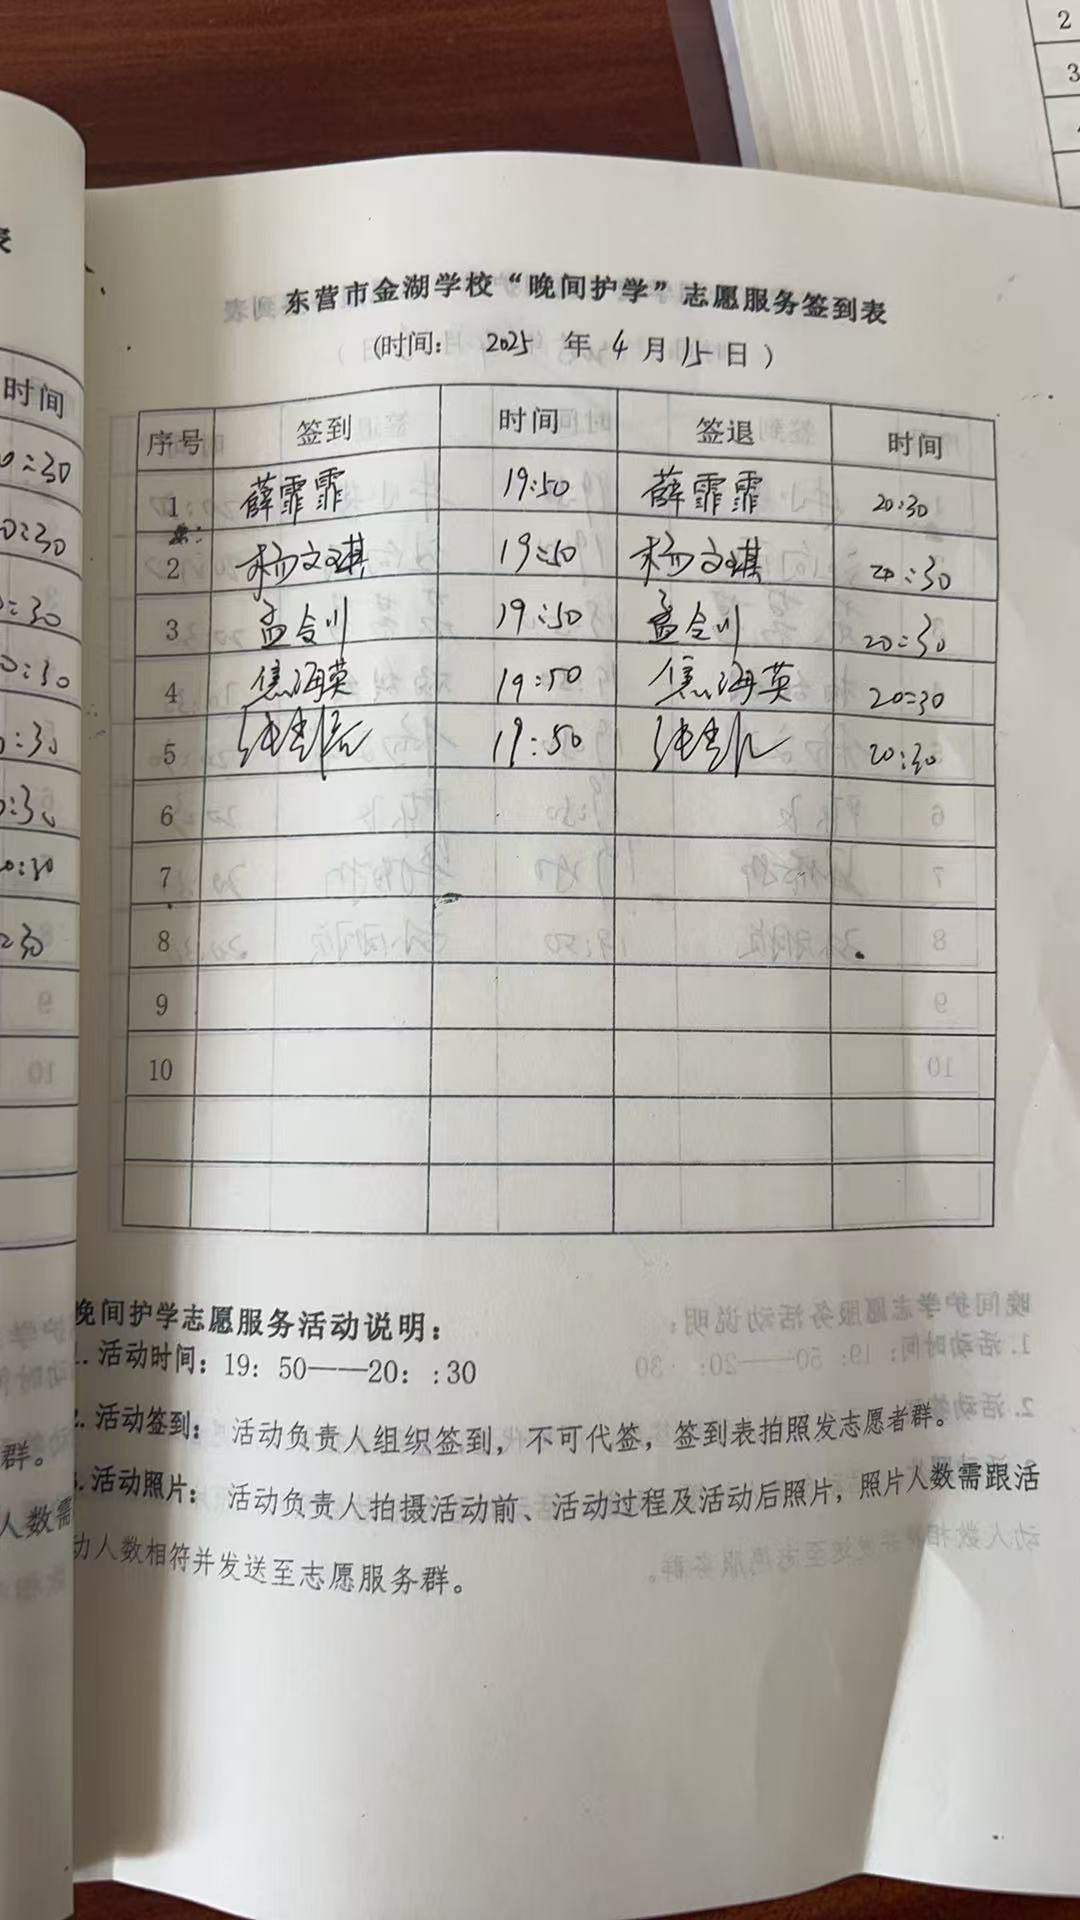 东营市金湖学校“晚间护学”志愿服务签到表
(时间: 2025 年 4 月 15 日 )
序号 签到 时间 签退 时间
1 薛霏霏 19:50 薛霏霏 20:30
2 杨文琪 19:50 杨文琪 20:30
3 孟令川 19:50 孟令川 20:30
4 焦海英 19:50 焦海英 20:30
5 19:50 20:30
6
7
8
9
10
晚间护学志愿服务活动说明：
1. 活动时间：19：50——20：:30
2. 活动签到： 活动负责人组织签到，不可代签，签到表拍照发志愿者群。
3. 活动照片： 活动负责人拍摄活动前、活动过程及活动后照片，照片人数需跟活
动人数相符并发送至志愿服务群。